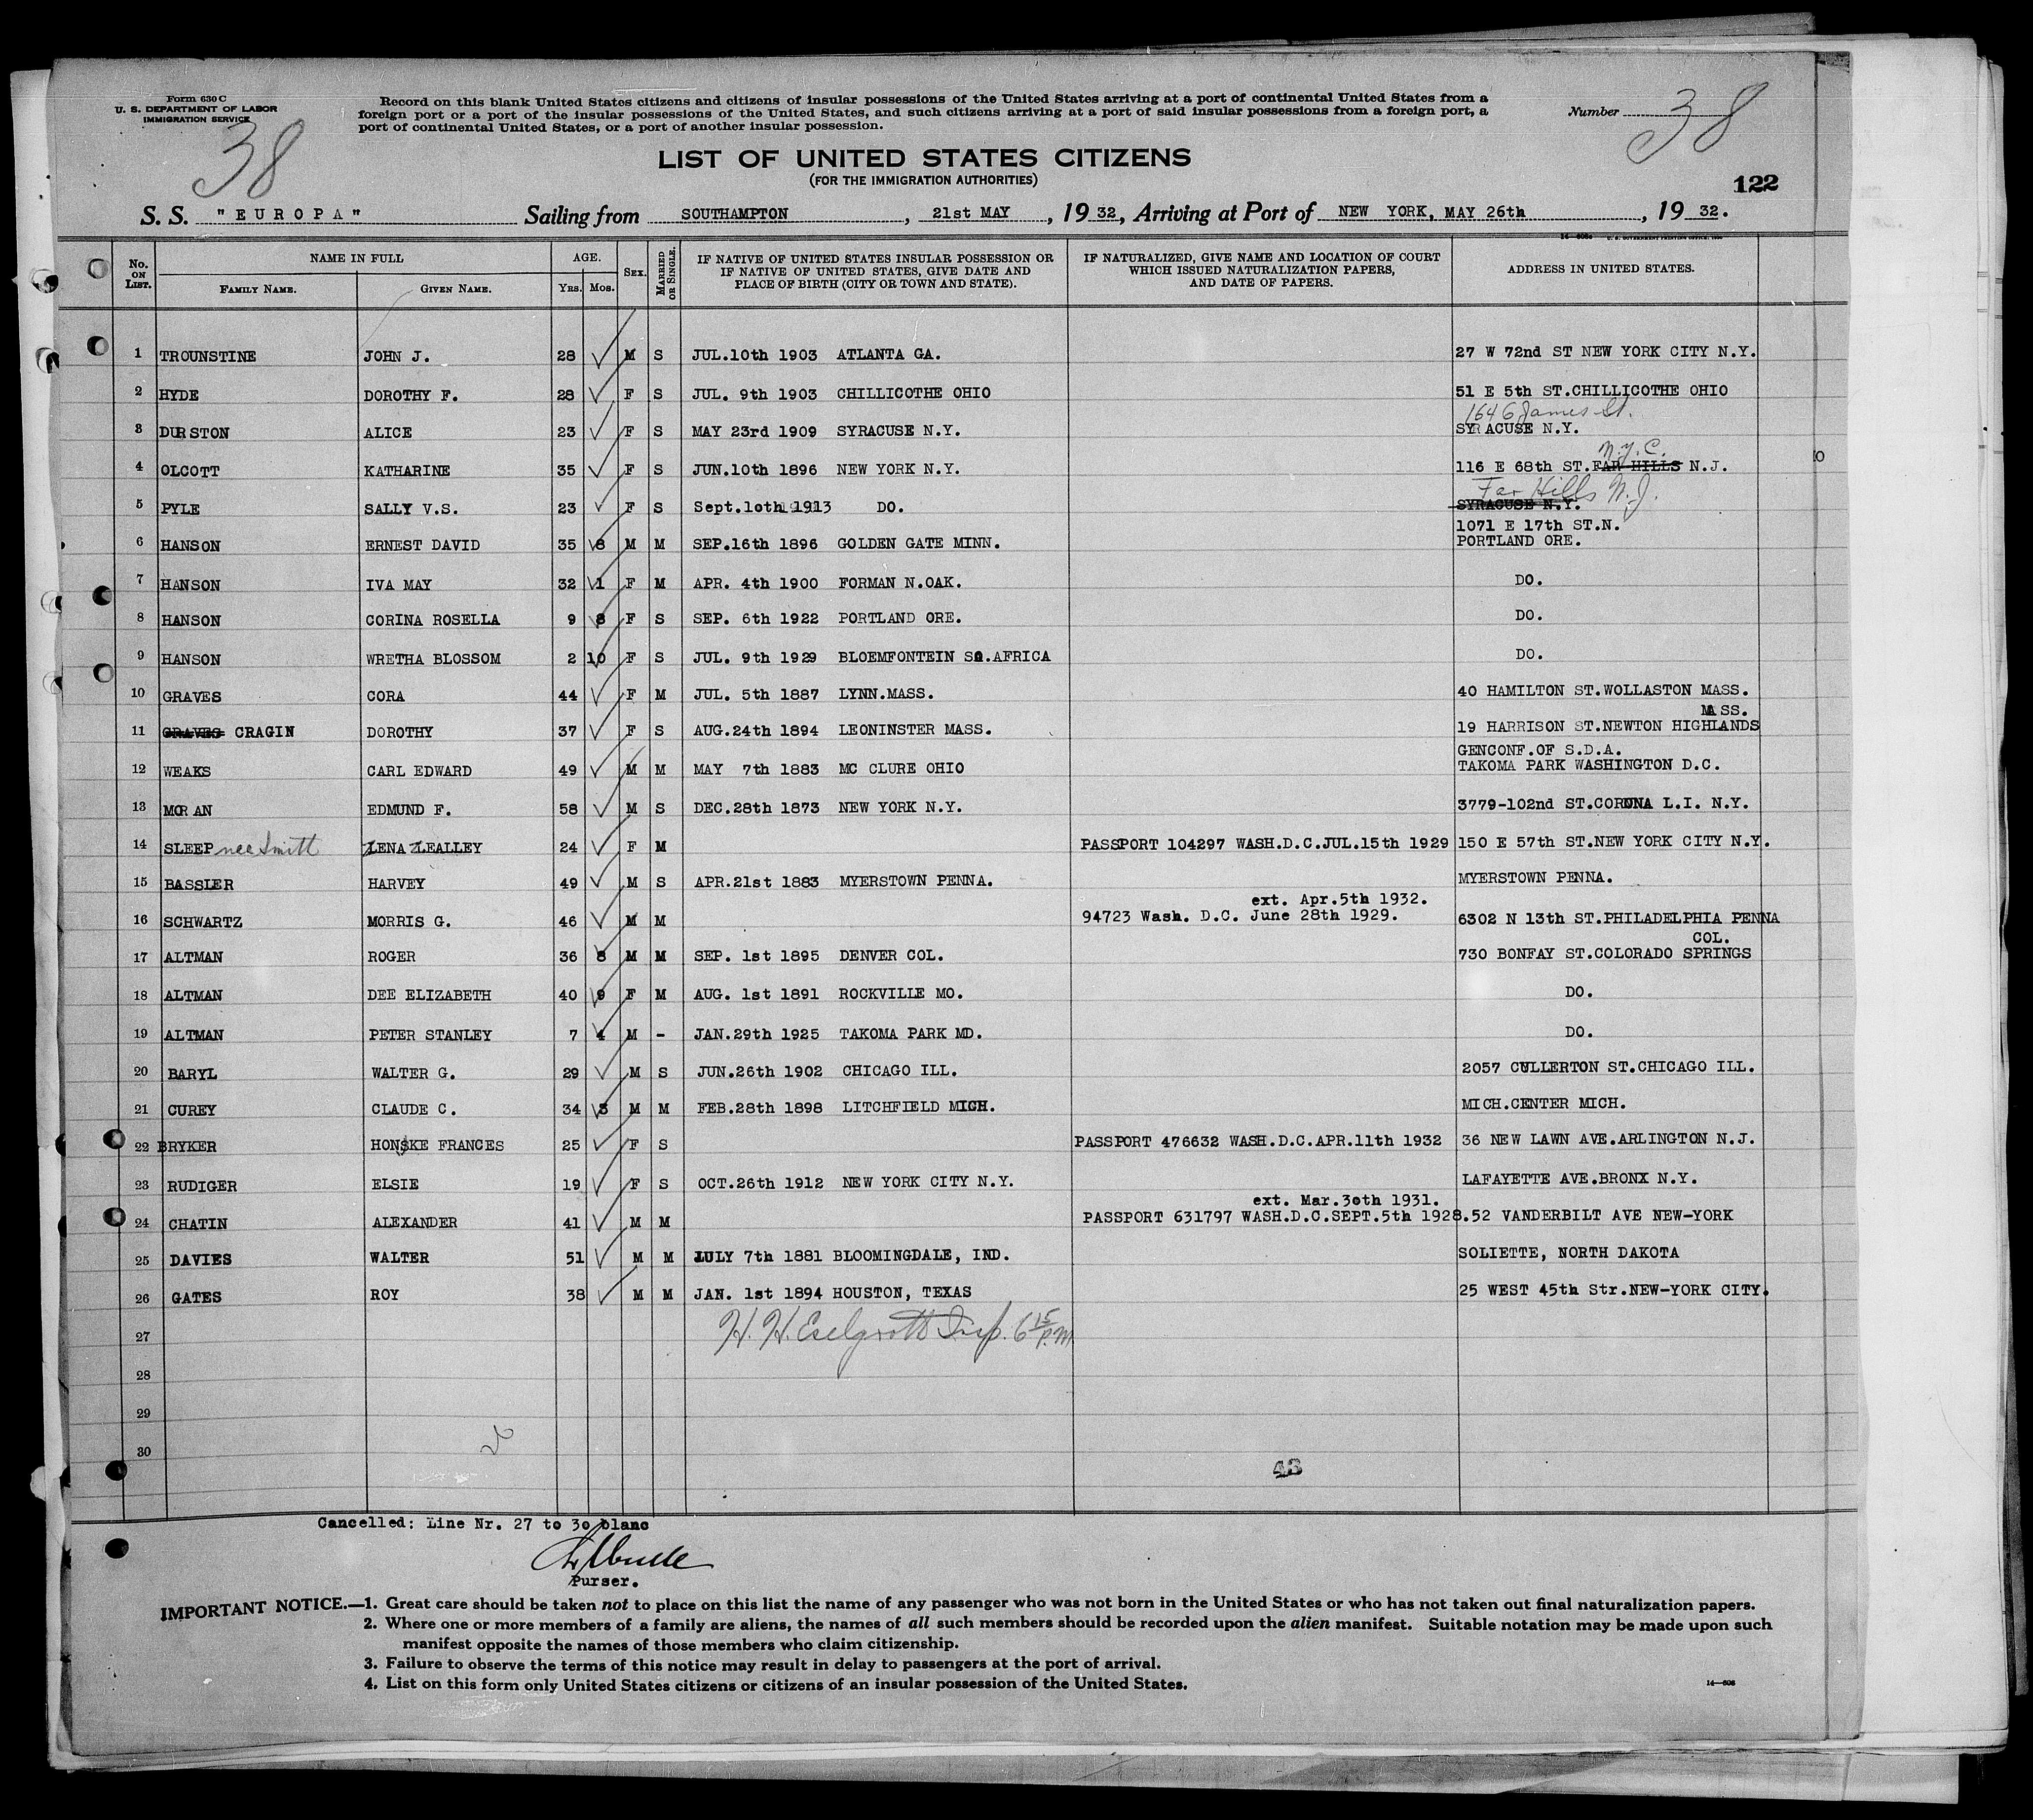 Form 630 C
U. S. DEPARTMENT OF LABOR
IMMIGRATION SERVICE
38
Record on this blank United States citizens and citizens of insular possessions of the United States arriving at a port of continental United States from a
foreign port or a port of the insular possessions of the United States, and such citizens arriving at a port of said insular possessions from a foreign port, a
port of continental United States, or a port of another insular possession.
Number 38
LIST OF UNITED STATES CITIZENS
(FOR THE IMMIGRATION AUTHORITIES)
122
S. S. "EUROPA" Sailing from SOUTHAMPTON, 21st MAY, 1932, Arriving at Port of NEW YORK, MAY 26th, 1932.
No. ON LIST. NAME IN FULL FAMILY NAME. GIVEN NAME. AGE. YRS. MOS. SEX. MARRIED OR SINGLE. IF NATIVE OF UNITED STATES INSULAR POSSESSION OR IF NATIVE OF UNITED STATES, GIVE DATE AND PLACE OF BIRTH (CITY OR TOWN AND STATE). IF NATURALIZED, GIVE NAME AND LOCATION OF COURT WHICH ISSUED NATURALIZATION PAPERS, AND DATE OF PAPERS. ADDRESS IN UNITED STATES.
1 TROUNSTINE JOHN J. 28 M S JUL.10th 1903 ATLANTA GA. 27 W 72nd ST NEW YORK CITY N.Y.
2 HYDE DOROTHY F. 28 F S JUL. 9th 1903 CHILLICOTHE OHIO 51 E 5th ST.CHILLICOTHE OHIO
1646 James St.
3 DURSTON ALICE 23 F S MAY 23rd 1909 SYRACUSE N.Y. SYRACUSE N.Y.
N.Y.C.
4 OLCOTT KATHARINE 35 F S JUN.10th 1896 NEW YORK N.Y. 116 E 68th ST.FAR HILLS N.J.
Far Hills N.J.
5 PYLE SALLY V.S. 23 F S Sept.10th 1913 DO. SYRACUSE N.Y.
1071 E 17th ST.N.
6 HANSON ERNEST DAVID 35 8 M M SEP.16th 1896 GOLDEN GATE MINN. PORTLAND ORE.
7 HANSON IVA MAY 32 1 F M APR. 4th 1900 FORMAN N.OAK. DO.
8 HANSON CORINA ROSELLA 9 8 F S SEP. 6th 1922 PORTLAND ORE. DO.
9 HANSON WRETHA BLOSSOM 2 10 F S JUL. 9th 1929 BLOEMFONTEIN SO.AFRICA DO.
10 GRAVES CORA 44 F M JUL. 5th 1887 LYNN.MASS. 40 HAMILTON ST.WOLLASTON MASS.
MASS.
11 GRAVES CRAGIN DOROTHY 37 F S AUG.24th 1894 LEONINSTER MASS. 19 HARRISON ST.NEWTON HIGHLANDS
GENCONF.OF S.D.A.
12 WEAKS CARL EDWARD 49 M M MAY 7th 1883 MC CLURE OHIO TAKOMA PARK WASHINGTON D.C.
13 MORAN EDMUND F. 58 M S DEC.28th 1873 NEW YORK N.Y. 3779-102nd ST.CORONA L.I. N.Y.
14 SLEEP nee Smith ZENA ZEALLEY 24 F M PASSPORT 104297 WASH.D.C.JUL.15th 1929 150 E 57th ST.NEW YORK CITY N.Y.
15 BASSLER HARVEY 49 M S APR.21st 1883 MYERSTOWN PENNA. MYERSTOWN PENNA.
ext. Apr.5th 1932.
16 SCHWARTZ MORRIS G. 46 M M 94723 Wash. D.C. June 28th 1929. 6302 N 13th ST.PHILADELPHIA PENNA
COL.
17 ALTMAN ROGER 36 8 M M SEP. 1st 1895 DENVER COL. 730 BONFAY ST.COLORADO SPRINGS
18 ALTMAN DEE ELIZABETH 40 9 F M AUG. 1st 1891 ROCKVILLE MO. DO.
19 ALTMAN PETER STANLEY 7 4 M - JAN.29th 1925 TAKOMA PARK MD. DO.
20 BARYL WALTER G. 29 M S JUN.26th 1902 CHICAGO ILL. 2057 CULLERTON ST.CHICAGO ILL.
21 CUREY CLAUDE C. 34 3 M M FEB.28th 1898 LITCHFIELD MICH. MICH.CENTER MICH.
22 BRYKER HONSKE FRANCES 25 F S PASSPORT 476632 WASH.D.C.APR.11th 1932 36 NEW LAWN AVE.ARLINGTON N.J.
23 RUDIGER ELSIE 19 F S OCT.26th 1912 NEW YORK CITY N.Y. LAFAYETTE AVE.BRONX N.Y.
ext. Mar.30th 1931.
24 CHATIN ALEXANDER 41 M M PASSPORT 631797 WASH.D.C.SEPT.5th 1928. 52 VANDERBILT AVE NEW-YORK
25 DAVIES WALTER 51 M M JULY 7th 1881 BLOOMINGDALE, IND. SOLIETTE, NORTH DAKOTA
26 GATES ROY 38 M M JAN. 1st 1894 HOUSTON, TEXAS 25 WEST 45th Str.NEW-YORK CITY.
27 H. H. Insp. 6 15 P.M
28
29
30
26
43
Cancelled: Line Nr. 27 to 30 blanc
Purser.
IMPORTANT NOTICE.—1. Great care should be taken not to place on this list the name of any passenger who was not born in the United States or who has not taken out final naturalization papers.
2. Where one or more members of a family are aliens, the names of all such members should be recorded upon the alien manifest. Suitable notation may be made upon such
manifest opposite the names of those members who claim citizenship.
3. Failure to observe the terms of this notice may result in delay to passengers at the port of arrival.
4. List on this form only United States citizens or citizens of an insular possession of the United States.
14—606